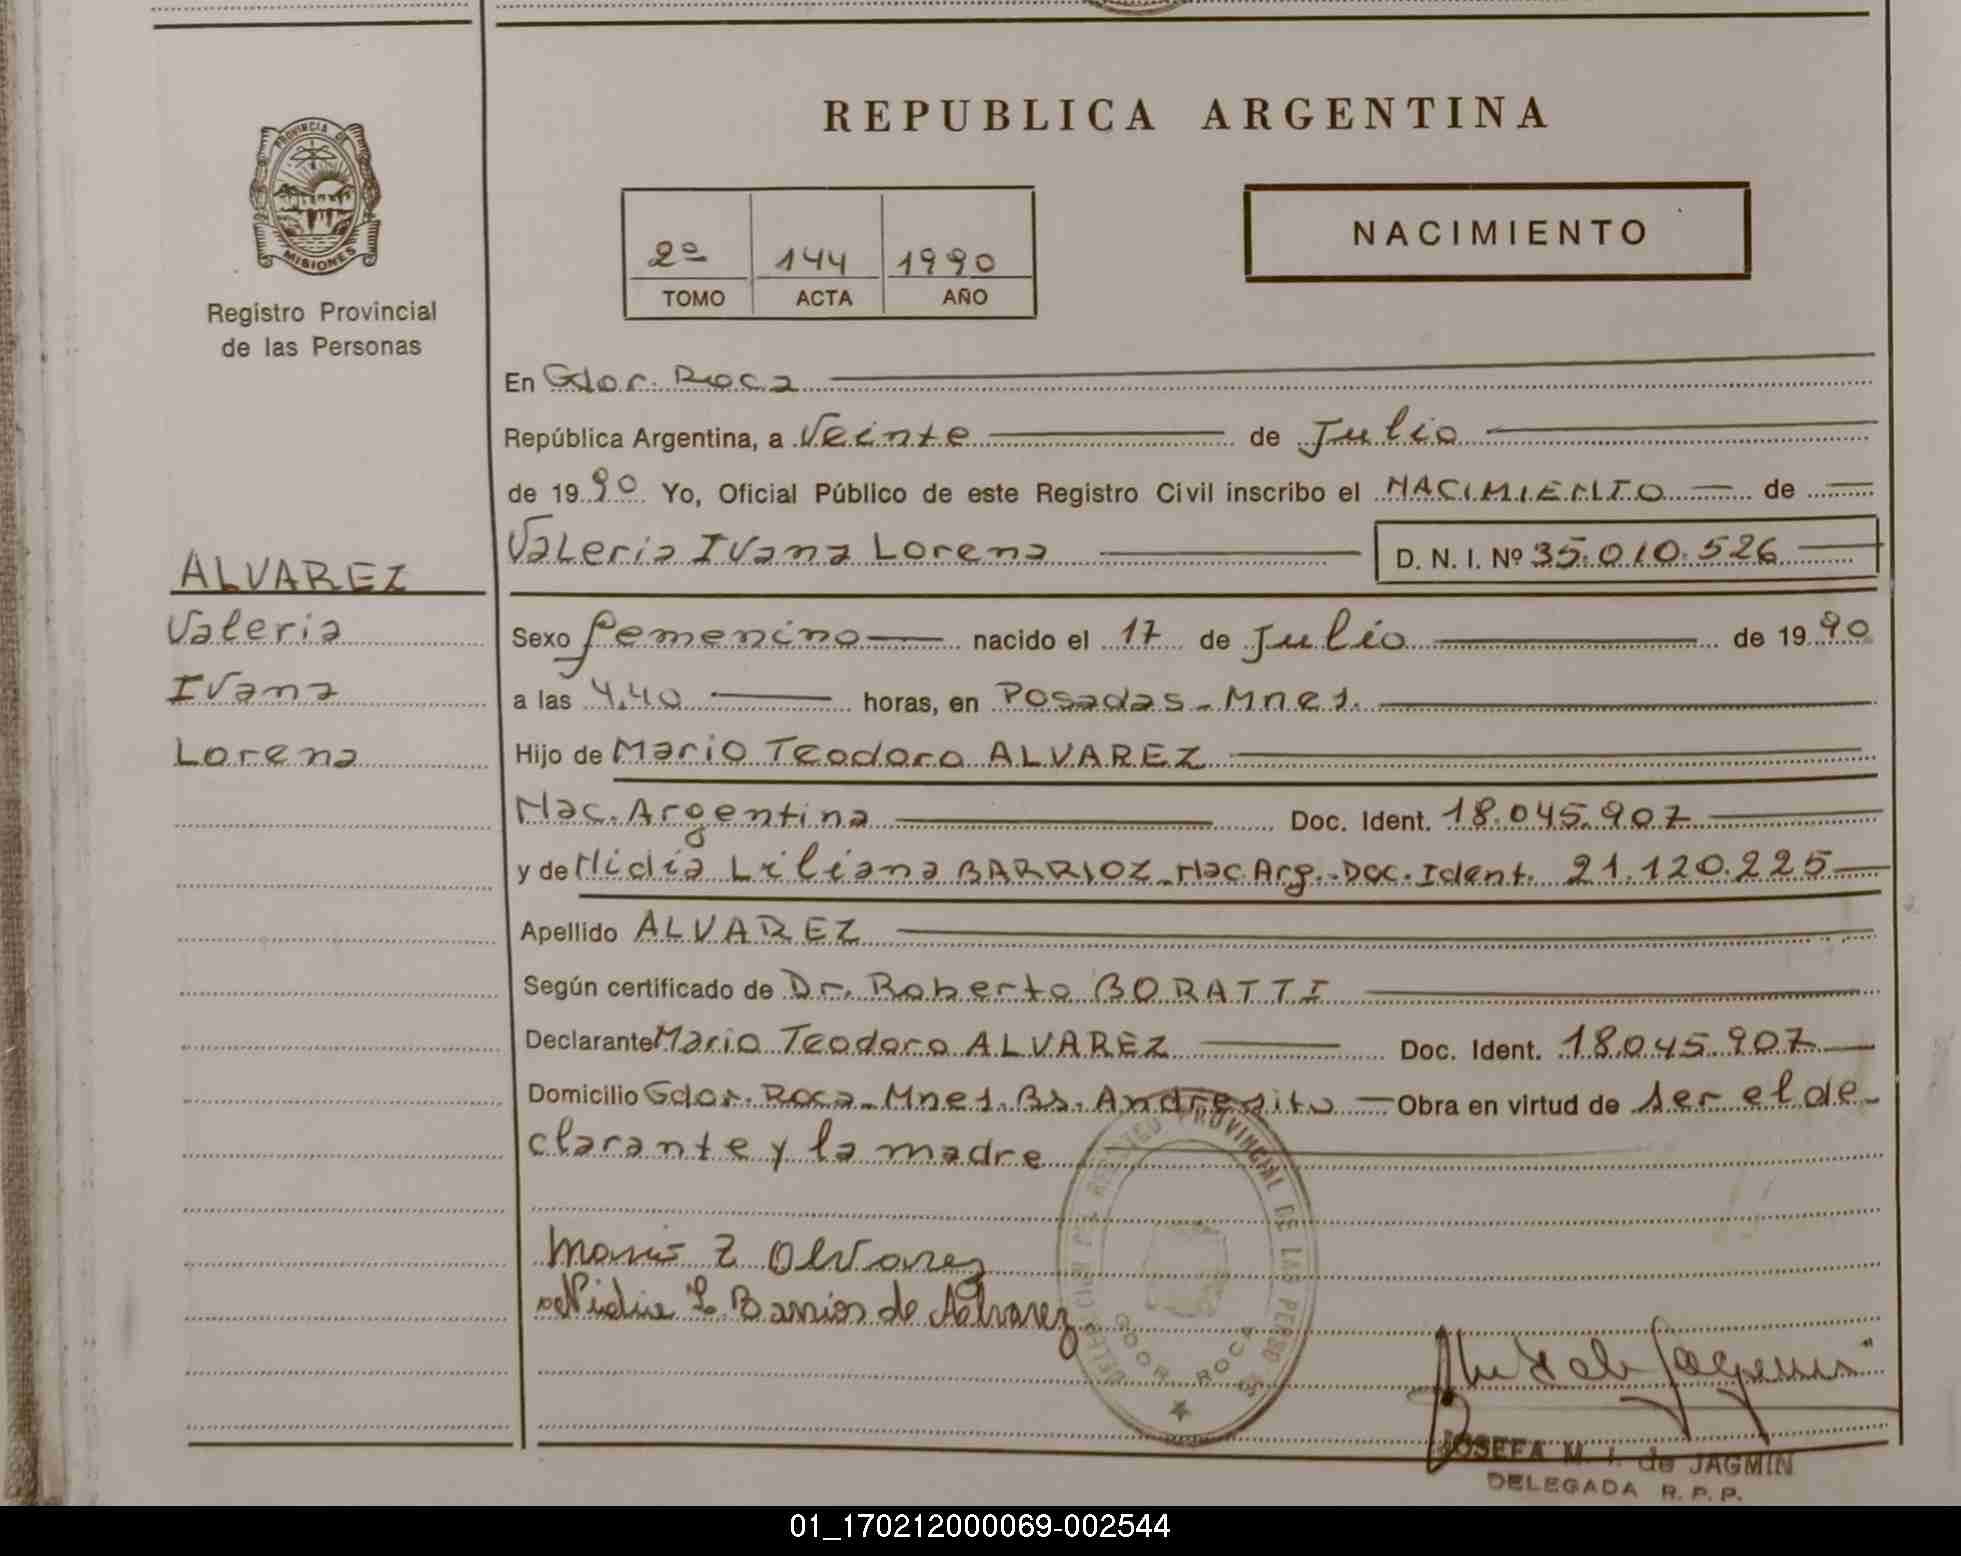 REPUBLICA ARGENTINA
PROVINCIA DE
MISIONES
Registro Provincial
de las Personas
2º 144 1990
TOMO ACTA AÑO
NACIMIENTO
En Gdor. Roca
República Argentina, a Veinte de Julio
de 1990 Yo, Oficial Público de este Registro Civil inscribo el NACIMIENTO de
Valeria Ivana Lorena D. N. I. Nº 35.010.526
ALVAREZ
Valeria
Ivana
Lorena
Sexo femenino nacido el 17 de Julio de 1990
a las 4,40 horas, en Posadas - Mnes.
Hijo de Mario Teodoro ALVAREZ
Nac. Argentina Doc. Ident. 18.045.907
y de Nidia Liliana BARRIOZ - Nac Arg. - Doc. Ident. 21.120.225
Apellido ALVAREZ
Según certificado de Dr. Roberto BORATTI
Declarante Mario Teodoro ALVAREZ Doc. Ident. 18.045.907
Domicilio Gdor. Roca - Mnes. Bs. Andresito - Obra en virtud de ser el de-
clarante y la madre
Mario T Alvarez
Nidia L. Barrios de Alvarez
PROVINCIAL DE LAS PERSO
GDOR ROCA
JOSEFA M. I. de JAGMIN
DELEGADA R. P. P.
01_170212000069-002544